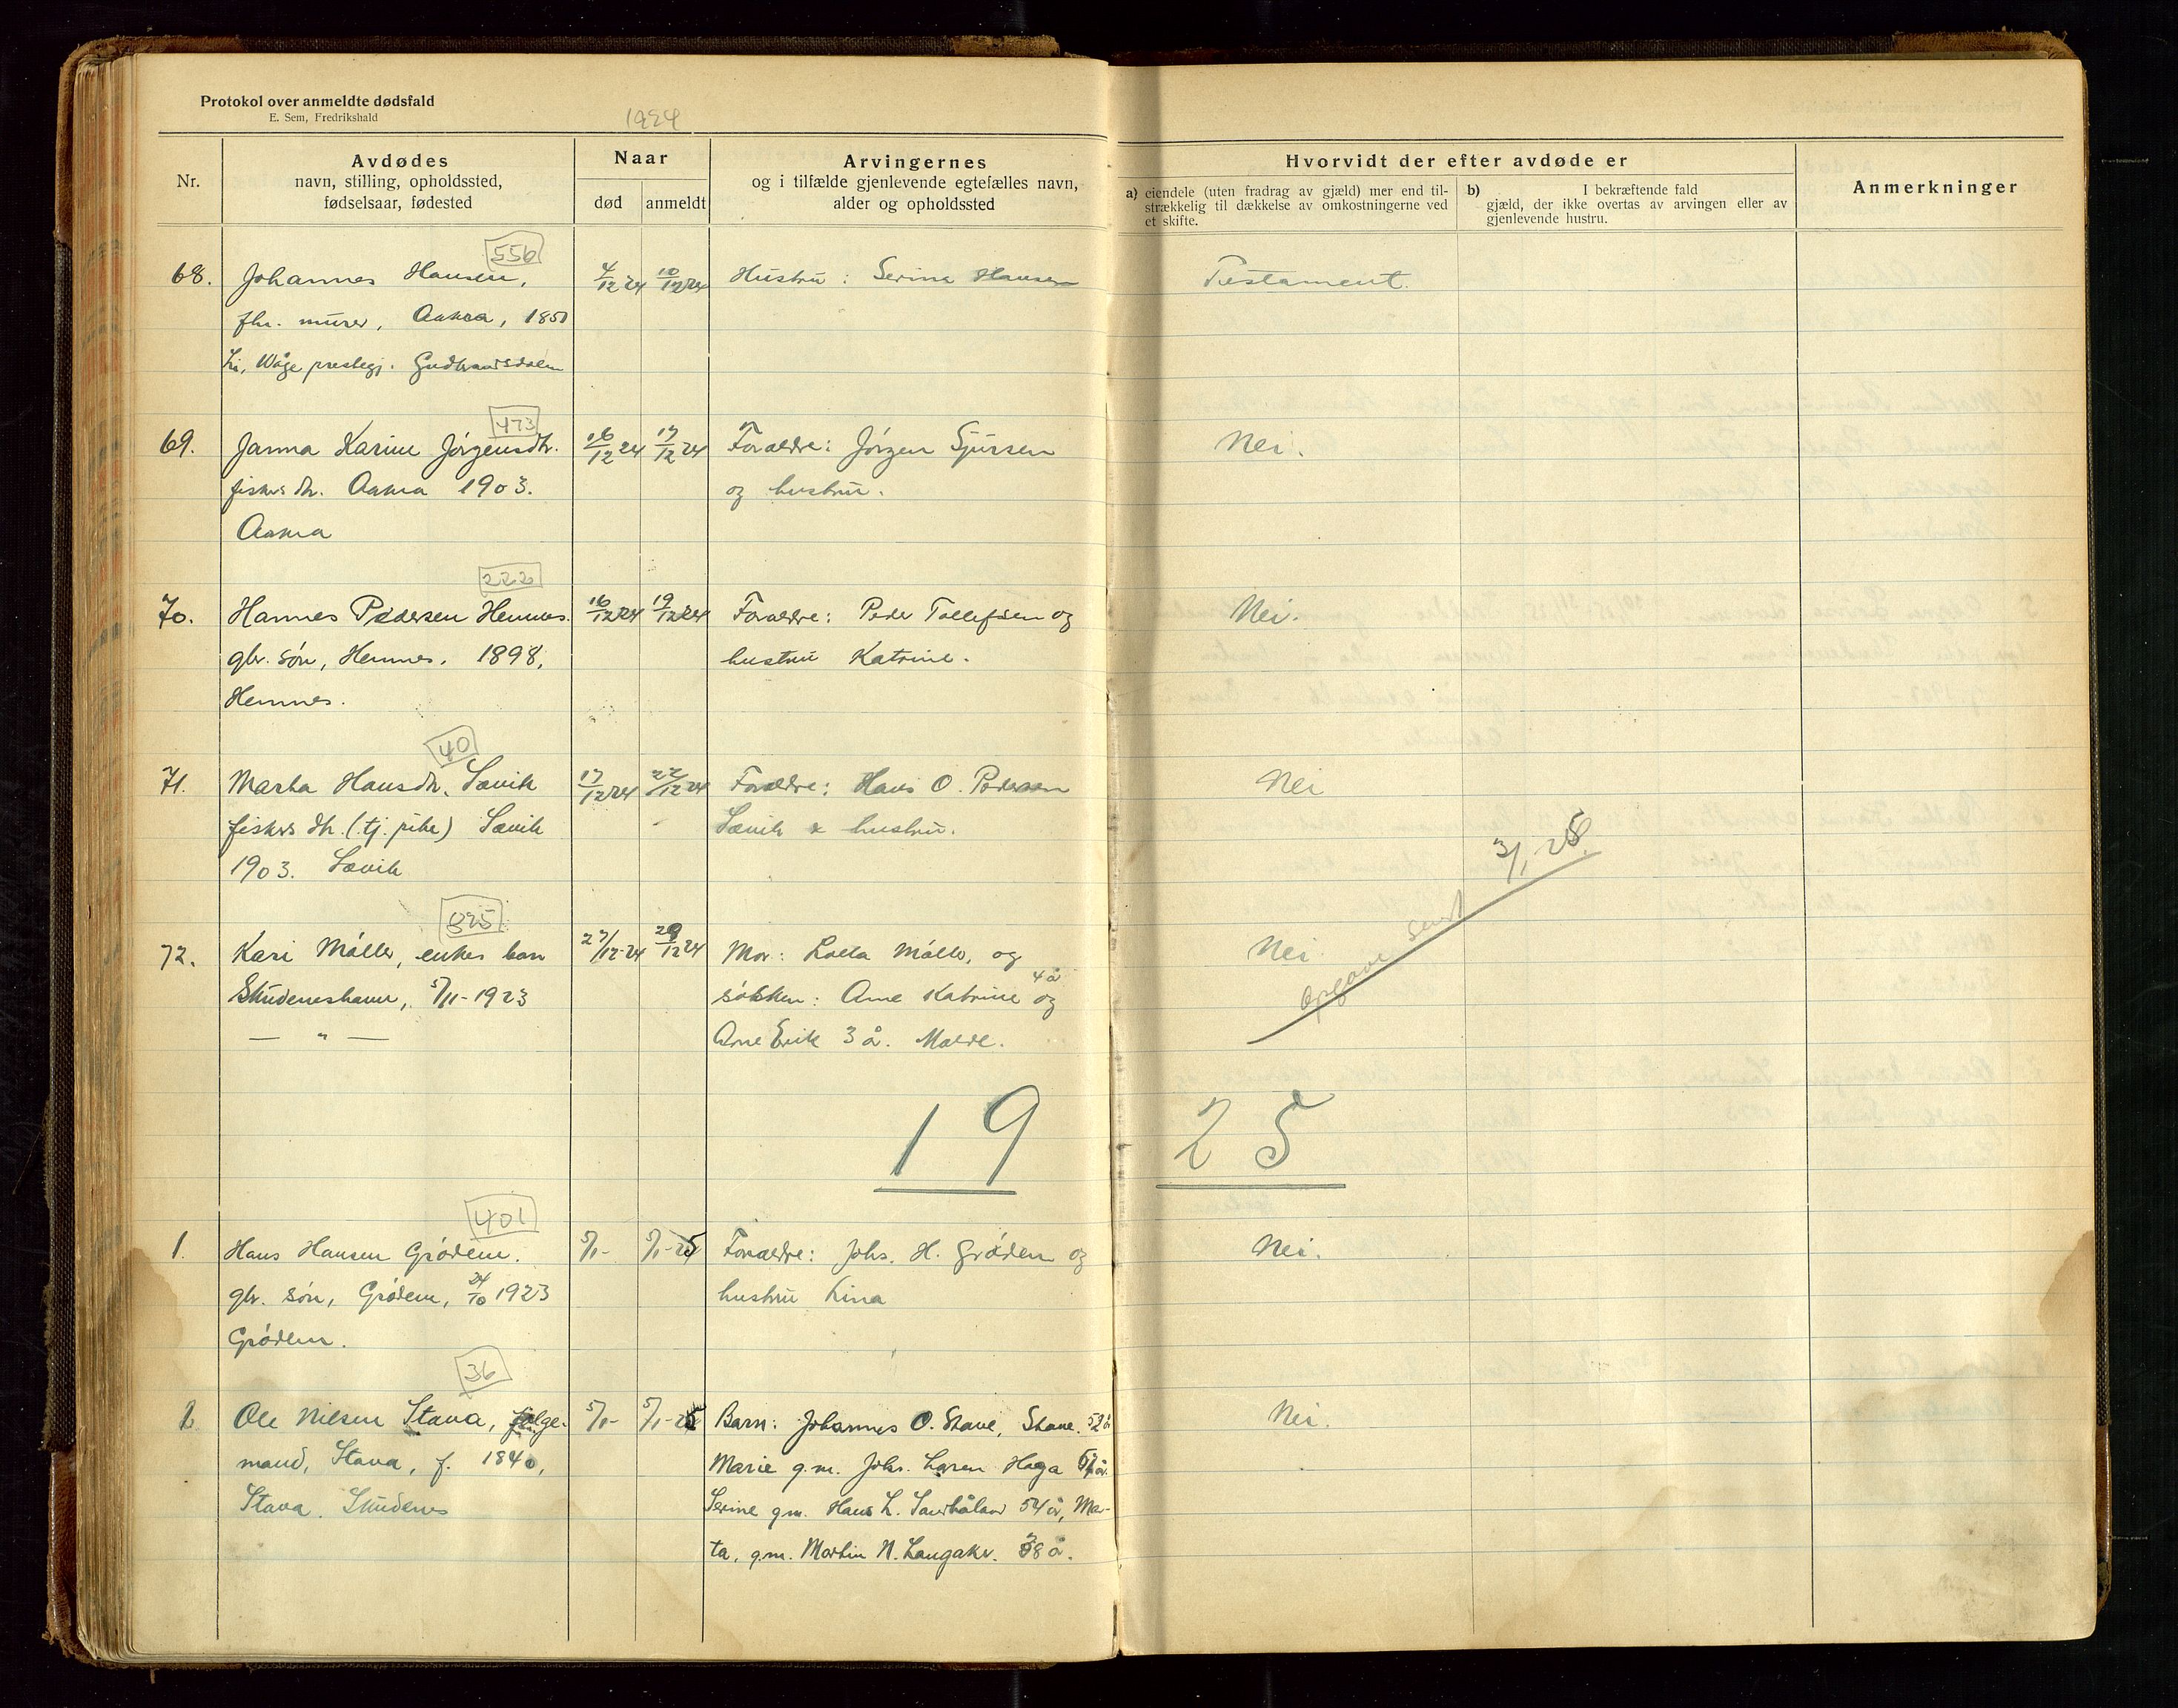 Protokol over anmeldte dødsfald
E. Sem, Fredrikshald
1924
Nr.
Avdødes
navn, stilling, opholdssted,
fødselsaar, fødested
Naar
død
anmeldt
Arvingernes
og i tilfælde gjenlevende egtefælles navn,
alder og opholdssted
Hvorvidt der efter avdøde er
a) eiendele (uten fradrag av gjæld) mer end til-
strækkelig til dækkelse av omkostningerne ved
et skifte.
b) I bekræftende fald
gjæld, der ikke overtas av arvingen eller av
gjenlevende hustru.
Anmerkninger
556
68. Johannes Hansen, 4/12 24 10/12 24 Hustru: Serina Hansen Testament.
fhv. murer, Aakra, 1850
Li, Wåge prestegj. Gudbrandsdalen
473
69. Janna Karine Jørgensdtr. 16/12 24 17/12 24 Forældre: Jørgen Sjursen Nei.
fiskers dtr. Aakra 1903. og hustru.
Aakra
222
70. Hannes Pedersen Hemnes. 16/12 24 19/12 24 Forældre: Peder Tollefsen og Nei.
gbr. søn, Hemnes. 1898, hustru Katrine.
Hemnes.
40
71. Marta Hansdtr. Sævik 17/12 24 22/12 24 Forældre: Hans O. Pedersen Nei
fiskers dtr. (tj. pike) Sævik Sævik & hustru.
1903. Sævik
3/1 25.
Opgave sendt
325
72. Kari Møller, enkes barn 27/12-24 29/12 24 Mor: Lalla Møller, og Nei
Skudeneshavn, 5/11-1923 søsken: Arne Katrine 4 å og
— " — Arne Erik 3 å. Malde.
19 25
401
1. Hans Hansen Grødem. 5/1- 5/1-25 Forældre: Johs. H. Grødem og Nei.
gbr. søn, Grødem, 24/10 1923 hustru Lina
Grødem.
36
2. Ole Nilsen Stava, følge- 5/1- 5/1-25 Barn: Johannes O. Stave, Stave. 52 å Nei.
mand, Stava, f. 1840, Marie g.m. Johs. Larsen Haga å.
Stava. Skudenes Serine g.m. Hans L. 54 år, Mar-
ta, g.m. Martin N. Langaker. 38 å.